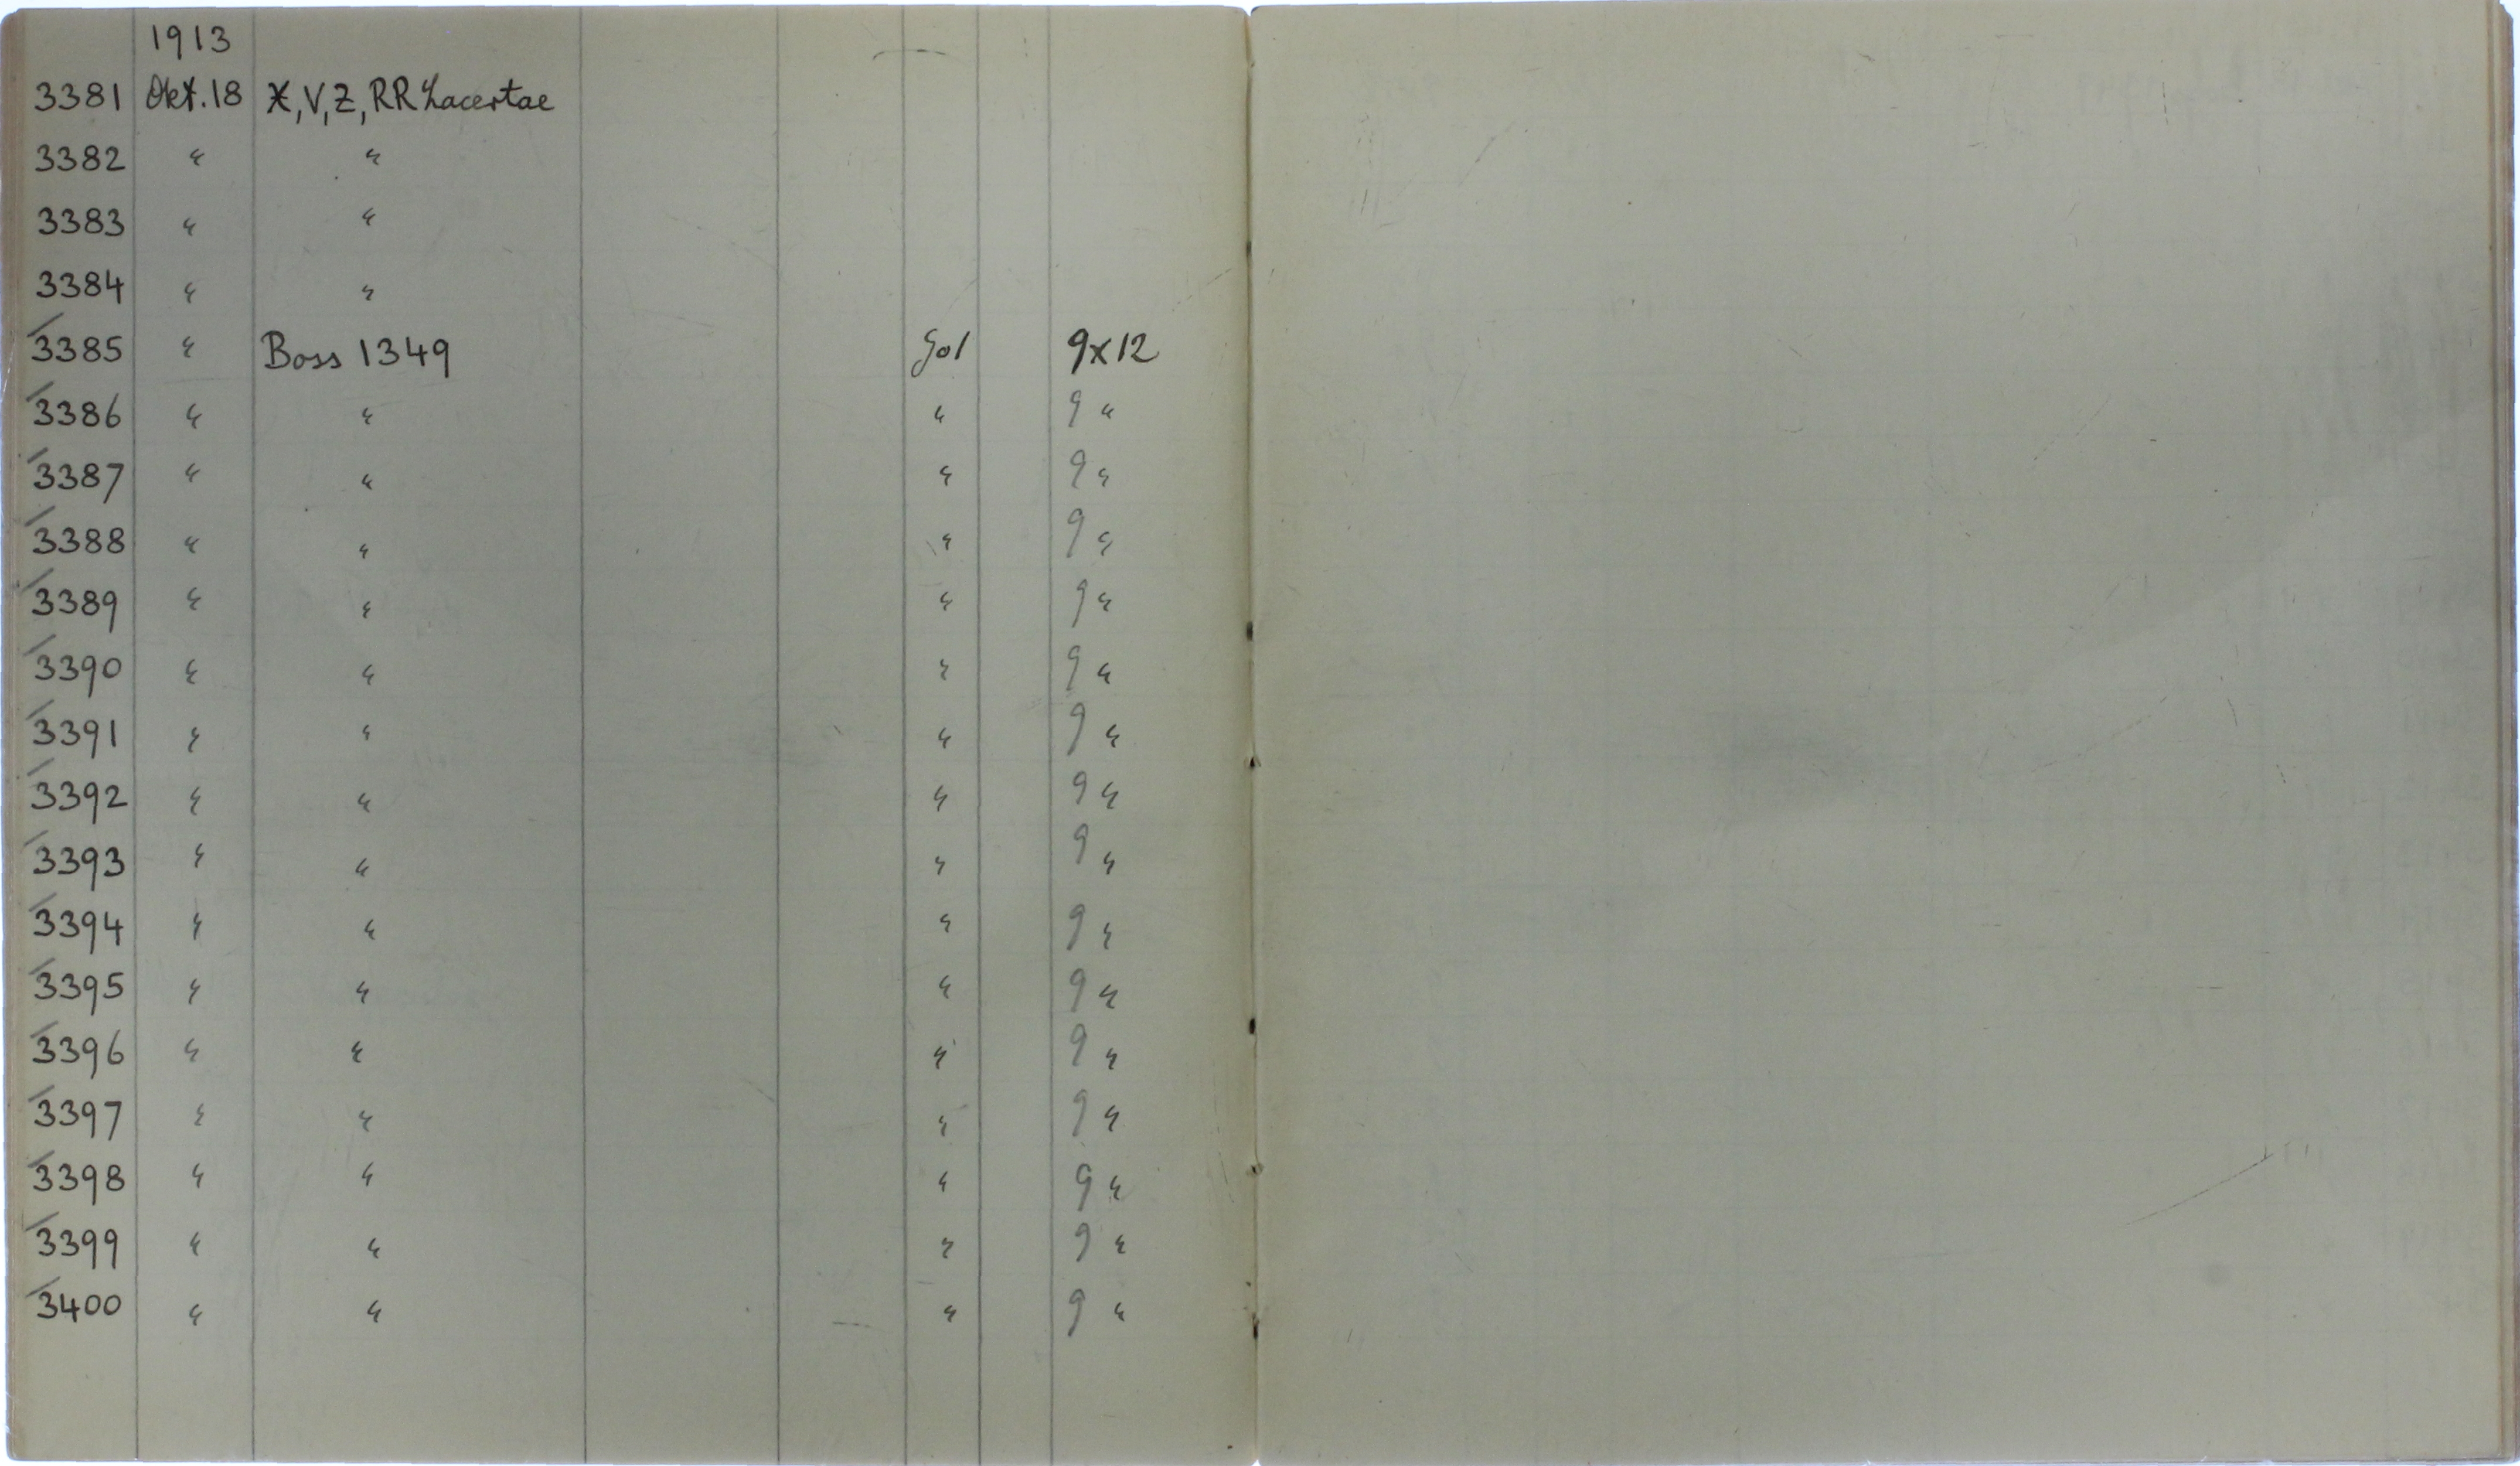 1913
3381 Okt. 18 X, V, Z, RR Lacertae
3382 " "
3383 " "
3384 " "
3385 " Boss 1349 Gol 9x12
3386 " " " 9 "
3387 " " " 9 "
3388 " " " 9 "
3389 " " " 9 "
3390 " " " 9 "
3391 " " " 9 "
3392 " " " 9 "
3393 " " " 9 "
3394 " " " 9 "
3395 " " " 9 "
3396 " " " 9 "
3397 " " " 9 "
3398 " " " 9 "
3399 " " " 9 "
3400 " " " 9 "